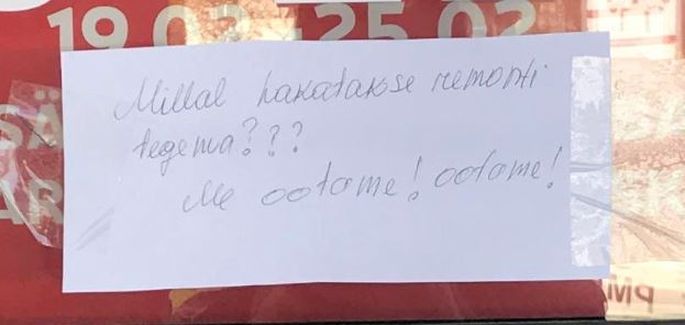 19.02 - 25.02
Millal hakatakse remonti
tegema???
Me ootame! ootame!
SÄ
AR